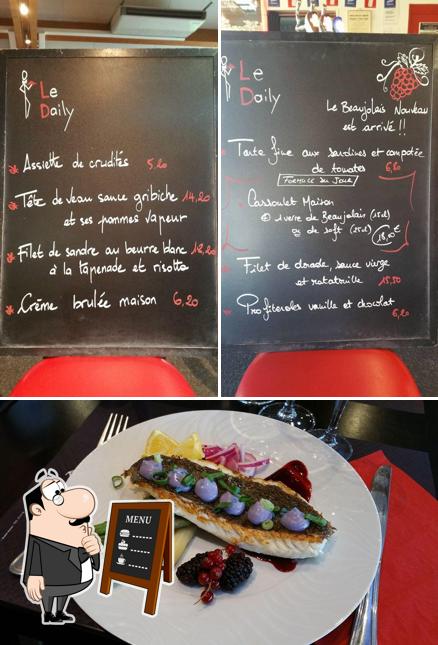 Le
Daily
Assiette de crudités 5,20
Tête de veau sauce gribiche 14,20
et ses pommes vapeur
Filet de sandre au beurre blanc 12,20
à la tapenade et risotto
Crème brulée maison 6,20
Le
Daily
Le Beaujolais Nouveau
est arrivé !!
Tarte fine aux sardines et compotée
de tomates 6,80
FORMULE DU JOUR
Cassoulet Maison
1 verre de Beaujolais (15cl)
ou de soft (25cl) 18,50€
Filet de dorade, sauce vierge
et ratatouille 15,50
Profiteroles vanille et chocolat
6,20
MENU